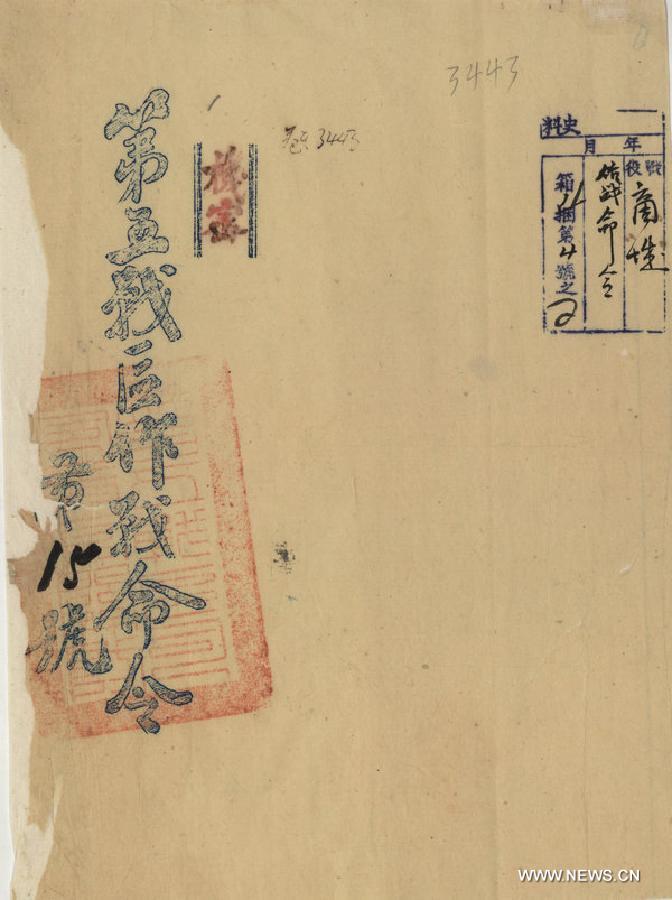 3443
史料
年 月
戰役
商城
作战命令
箱 捆第4號之2
卷3443
機密
第五战区作战命令
第15號
WWW.NEWS.CN